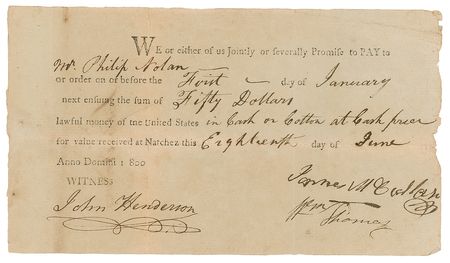 WE or either of us Jointly or severally Promise to PAY to
Mr. Philip Nolan
or order on or before the First day of January
next ensuing the sum of Fifty Dollars
lawful money of the United States in Cash or Cotton at Cash price
for value received at Natchez this Eighteenth day of June
Anno Domini 1800
WITNESS
John Henderson
James
Wm Thomas